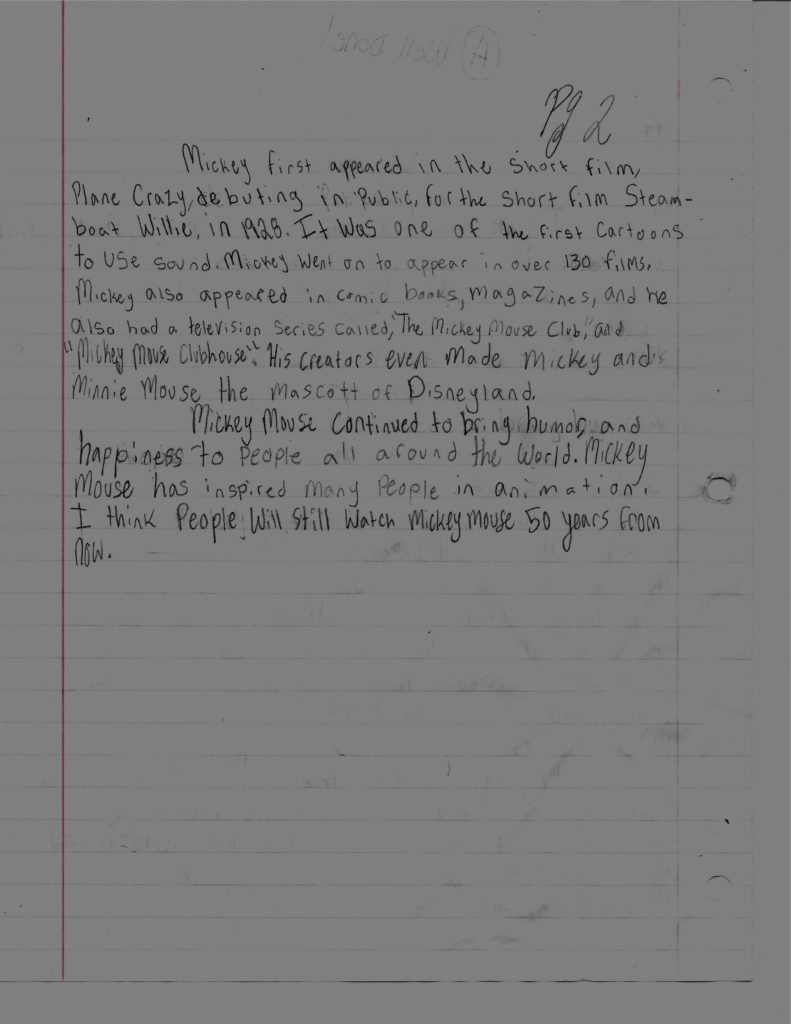 A Well Done!
Pg 2
Mickey first appeared in the short film,
Plane Crazy, debuting in Public, for the short film Steam-
boat Willie, in 1928. It was one of the first cartoons
to use sound. Mickey went on to appear in over 130 films.
Mickey also appeared in comic books, magazines, and he
also had a television series called, "The Mickey Mouse Club," and
"Mickey Mouse Clubhouse". His creators even made Mickey and
Minnie Mouse the mascott of Disneyland.
Mickey Mouse continued to bring humor, and
happiness to People all around the world. Mickey
Mouse has inspired many People in animation.
I think People, Will still watch Mickey mouse 50 years from
now.